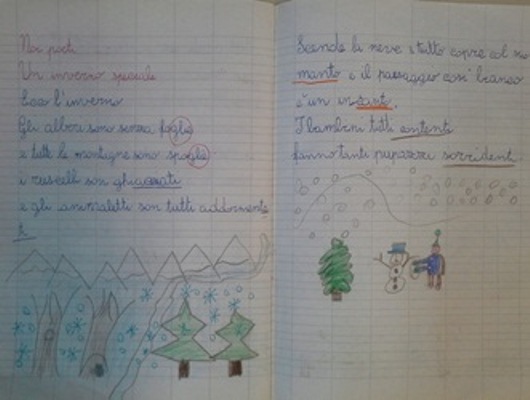 Noi poeti
Un inverno speciale
Ecco l'inverno
Gli alberi sono senza foglie
e tutte le montagne sono spoglie
i ruscelli son ghiacciati
e gli animaletti son tutti addormenta
ti
Scende la neve e tutto copre col suo
manto e il paesaggio così bianco
è un incanto.
I bambini tutti contenti
fanno tanti pupazzi sorridenti